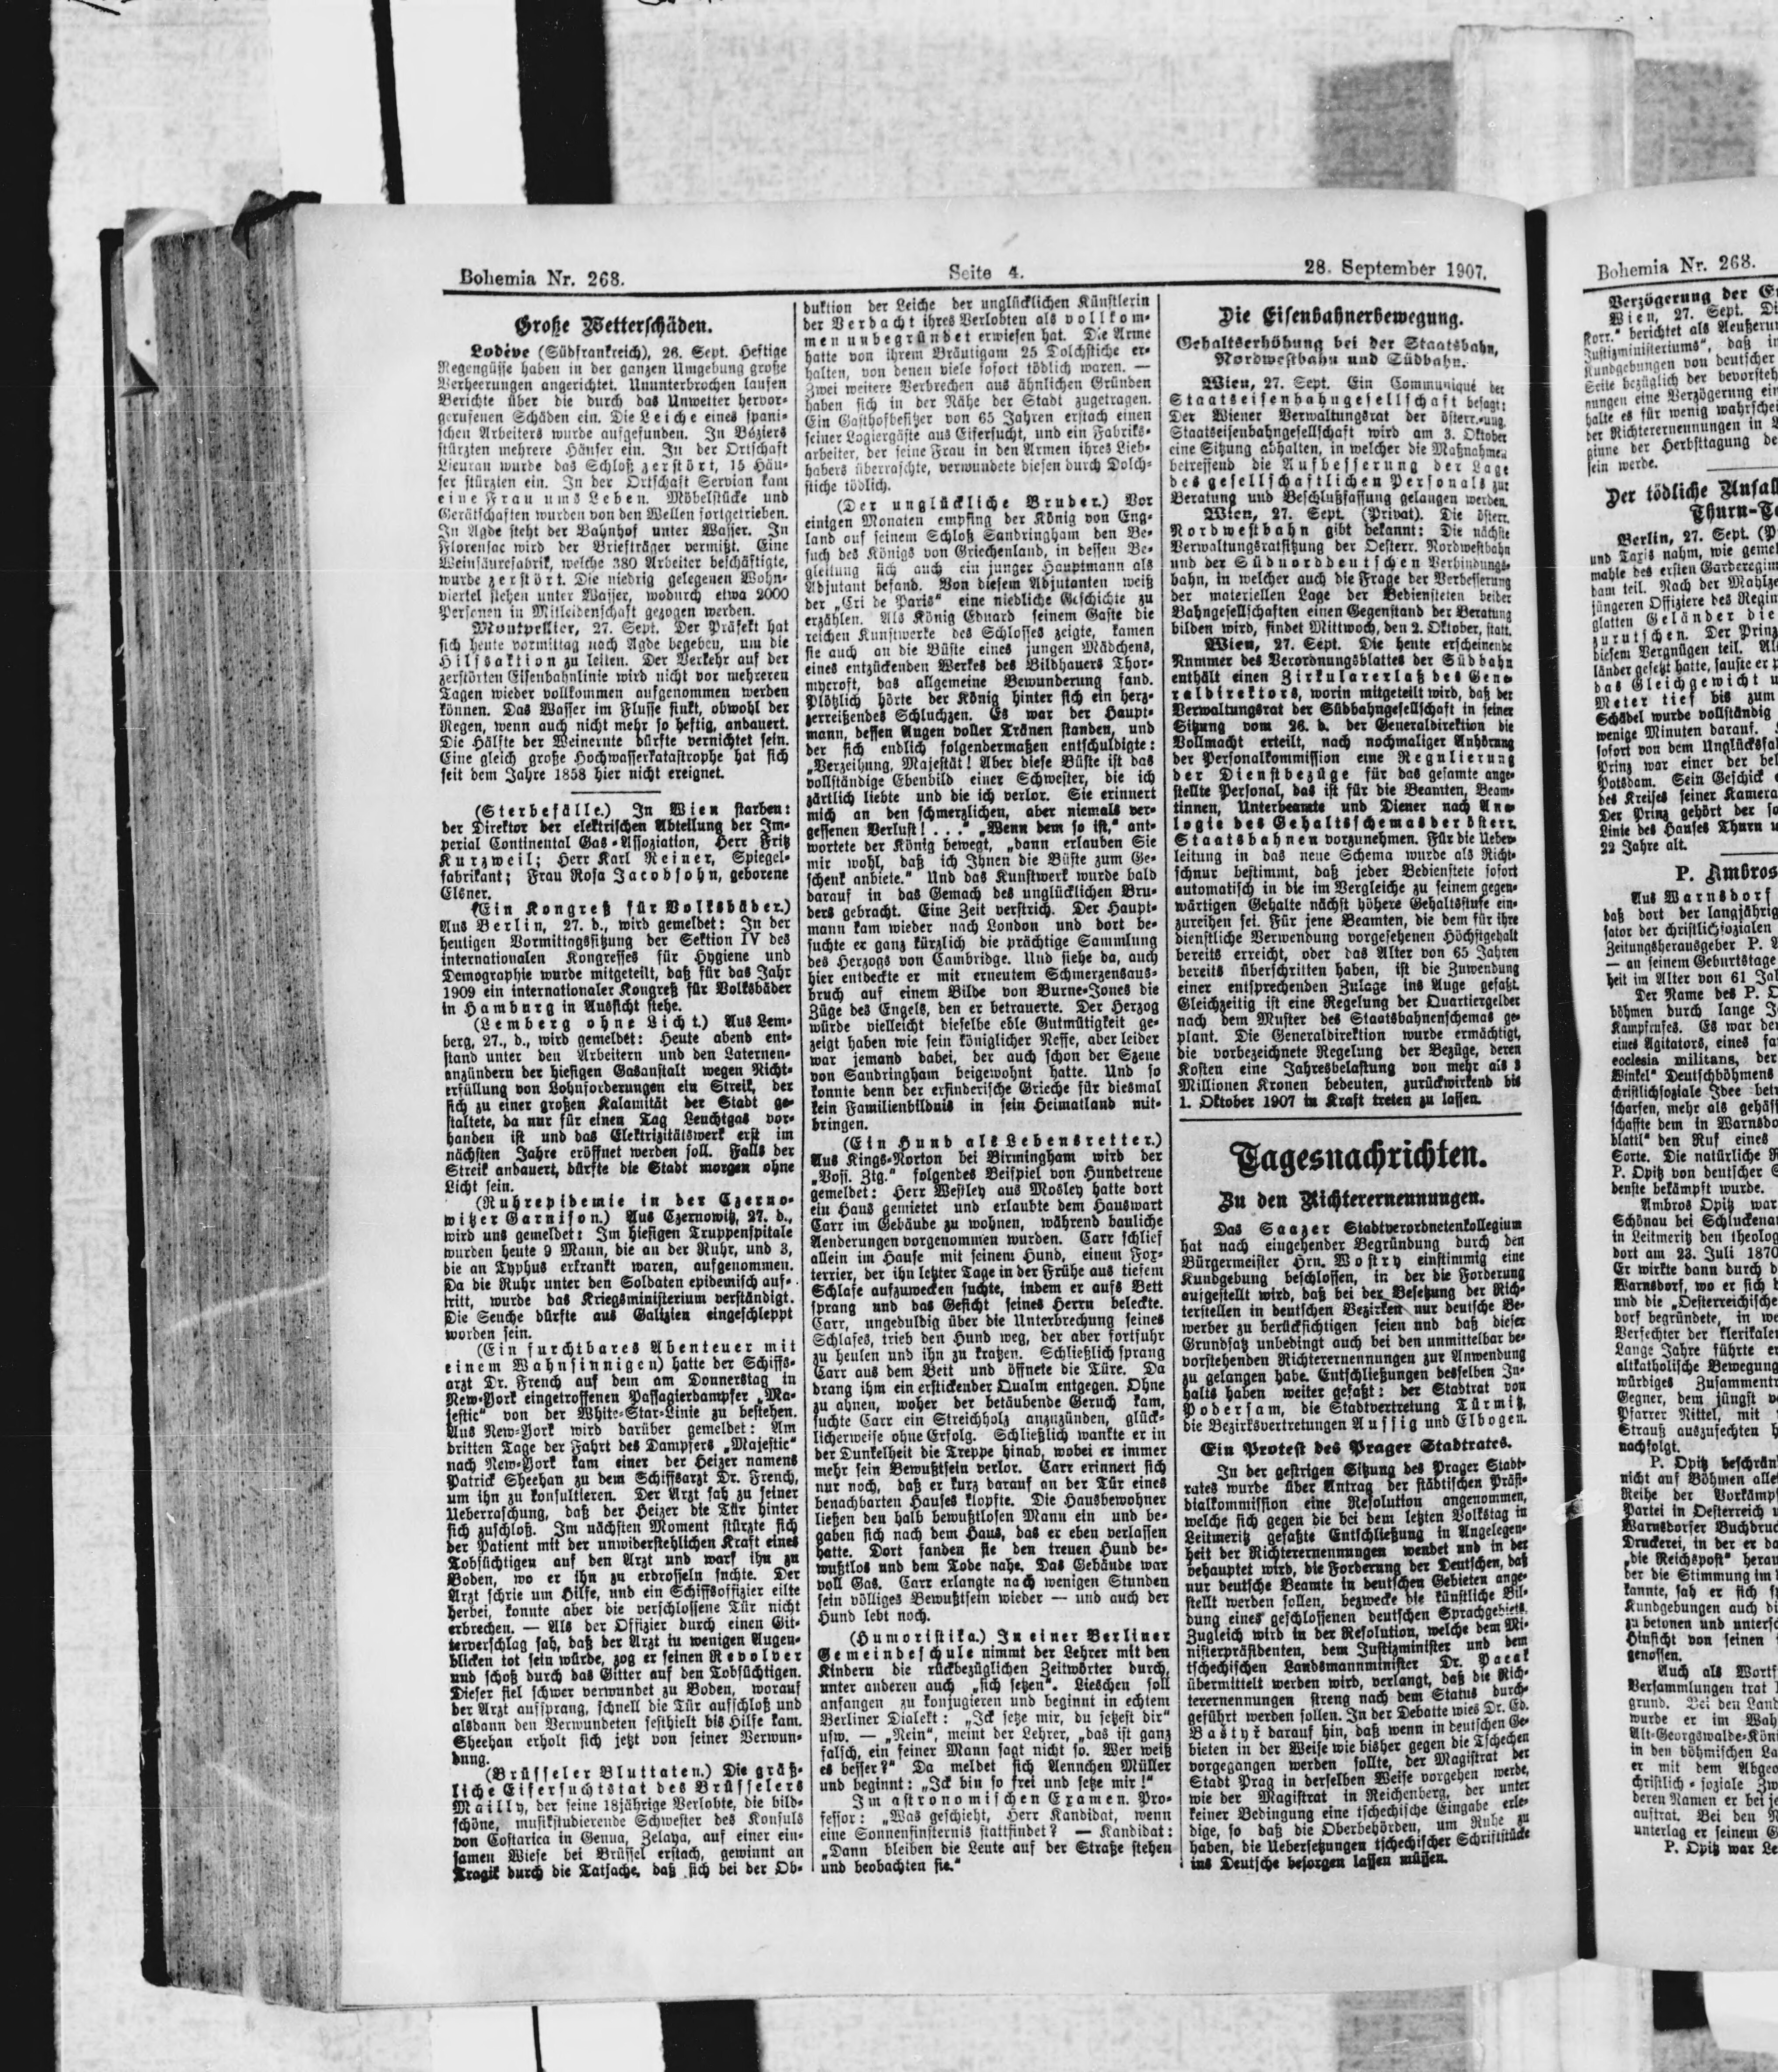 Bohemia Nr. 268.
Seite 4.
28. September 1907.
Große Wetterschäden.
Lodève (Südfrankreich), 26. Sept. Heftige
Regengüsse haben in der ganzen Umgebung große
Verheerungen angerichtet. Ununterbrochen laufen
Berichte über die durch das Unwetter hervor-
gerufenen Schäden ein. Die Leiche eines spani-
schen Arbeiters wurde aufgefunden. In Béziers
stürzten mehrere Häuser ein. In der Ortschaft
Lieuran wurde das Schloß zerstört, 15 Häu-
ser stürzten ein. In der Ortschaft Servian kam
eine Frau ums Leben. Möbelstücke und
Gerätschaften wurden von den Wellen fortgetrieben.
In Agde steht der Bahnhof unter Wasser. In
Florensac wird der Briefträger vermißt. Eine
Weinsäurefabrik, welche 380 Arbeiter beschäftigte,
wurde zerstört. Die niedrig gelegenen Wohn-
viertel stehen unter Wasser, wodurch etwa 2000
Personen in Mitleidenschaft gezogen werden.
Montpellier, 27. Sept. Der Präfekt hat
sich heute vormittag nach Agde begeben, um die
Hilfsaktion zu leiten. Der Verkehr auf der
zerstörten Eisenbahnlinie wird nicht vor mehreren
Tagen wieder vollkommen aufgenommen werden
können. Das Wasser im Flusse sinkt, obwohl der
Regen, wenn auch nicht mehr so heftig, andauert.
Die Hälfte der Weinernte dürfte vernichtet sein.
Eine gleich große Hochwasserkatastrophe hat sich
seit dem Jahre 1858 hier nicht ereignet.
(Sterbefälle.) In Wien starben:
der Direktor der elektrischen Abteilung der Im-
perial Continental Gas-Assoziation, Herr Fritz
Kurzweil; Herr Karl Reiner, Spiegel-
fabrikant; Frau Rosa Jacobsohn, geborene
Elsner.
(Ein Kongreß für Volksbäder.)
Aus Berlin, 27. d., wird gemeldet: In der
heutigen Vormittagssitzung der Sektion IV des
internationalen Kongresses für Hygiene und
Demographie wurde mitgeteilt, daß für das Jahr
1909 ein internationaler Kongreß für Volksbäder
in Hamburg in Aussicht stehe.
(Lemberg ohne Licht.) Aus Lem-
berg, 27., d., wird gemeldet: Heute abend ent-
stand unter den Arbeitern und den Laternen-
anzündern der hiesigen Gasanstalt wegen Nicht-
erfüllung von Lohnforderungen ein Streik, der
sich zu einer großen Kalamität der Stadt ge-
staltete, da nur für einen Tag Leuchtgas vor-
handen ist und das Elektrizitätswerk erst im
nächsten Jahre eröffnet werden soll. Falls der
Streik andauert, dürfte die Stadt morgen ohne
Licht sein.
(Ruhrepidemie in der Czerno-
witzer Garnison.) Aus Czernowitz, 27. d.,
wird uns gemeldet: Im hiesigen Truppenspitale
wurden heute 9 Mann, die an der Ruhr, und 3,
die an Typhus erkrankt waren, aufgenommen.
Da die Ruhr unter den Soldaten epidemisch auf-
tritt, wurde das Kriegsministerium verständigt.
Die Seuche dürfte aus Galizien eingeschleppt
worden sein.
(Ein furchtbares Abenteuer mit
einem Wahnsinnigen) hatte der Schiffs-
arzt Dr. French auf dem am Donnerstag in
New-York eingetroffenen Passagierdampfer „Ma-
jestic“ von der White-Star-Linie zu bestehen.
Aus New-York wird darüber gemeldet: Am
dritten Tage der Fahrt des Dampfers „Majestic“
nach New-York kam einer der Heizer namens
Patrick Sheehan zu dem Schiffsarzt Dr. French,
um ihn zu konsultieren. Der Arzt sah zu seiner
Ueberraschung, daß der Heizer die Tür hinter
sich zuschloß. Im nächsten Moment stürzte sich
der Patient mit der unwiderstehlichen Kraft eines
Tobsüchtigen auf den Arzt und warf ihn zu
Boden, wo er ihn zu erdrosseln suchte. Der
Arzt schrie um Hilfe, und ein Schiffsoffizier eilte
herbei, konnte aber die verschlossene Tür nicht
erbrechen. — Als der Offizier durch einen Git-
terverschlag sah, daß der Arzt in wenigen Augen-
blicken tot sein würde, zog er seinen Revolver
und schoß durch das Gitter auf den Tobsüchtigen.
Dieser fiel schwer verwundet zu Boden, worauf
der Arzt aufsprang, schnell die Tür aufschloß und
alsdann den Verwundeten festhielt bis Hilfe kam.
Sheehan erholt sich jetzt von seiner Verwun-
dung.
(Brüsseler Bluttaten.) Die gräß-
liche Eifersuchtstat des Brüsselers
Mailly, der seine 18jährige Verlobte, die bild-
schöne, musikstudierende Schwester des Konsuls
von Costarica in Genua, Zelaya, auf einer ein-
samen Wiese bei Brüssel erstach, gewinnt an
Tragik durch die Tatsache, daß sich bei der Ob-
duktion der Leiche der unglücklichen Künstlerin
der Verdacht ihres Verlobten als vollkom-
men unbegründet erwiesen hat. Die Arme
hatte von ihrem Bräutigam 25 Dolchstiche er-
halten, von denen viele sofort tödlich waren. —
Zwei weitere Verbrechen aus ähnlichen Gründen
haben sich in der Nähe der Stadt zugetragen.
Ein Gasthofbesitzer von 65 Jahren erstach einen
seiner Logiergäste aus Eifersucht, und ein Fabriks-
arbeiter, der seine Frau in den Armen ihres Lieb-
habers überraschte, verwundete diesen durch Dolch-
stiche tödlich.
(Der unglückliche Bruder.) Vor
einigen Monaten empfing der König von Eng-
land auf seinem Schloß Sandringham den Be-
such des Königs von Griechenland, in dessen Be-
gleitung sich auch ein junger Hauptmann als
Adjutant befand. Von diesem Adjutanten weiß
der „Cri de Paris“ eine niedliche Geschichte zu
erzählen. Als König Eduard seinem Gaste die
reichen Kunstwerke des Schlosses zeigte, kamen
sie auch an die Büste eines jungen Mädchens,
eines entzückenden Werkes des Bildhauers Thor-
mycroft, das allgemeine Bewunderung fand.
Plötzlich hörte der König hinter sich ein herz-
zerreißendes Schluchzen. Es war der Haupt-
mann, dessen Augen voller Tränen standen, und
der sich endlich folgendermaßen entschuldigte:
„Verzeihung, Majestät! Aber diese Büste ist das
vollständige Ebenbild einer Schwester, die ich
zärtlich liebte und die ich verlor. Sie erinnert
mich an den schmerzlichen, aber niemals ver-
gessenen Verlust! . . .“ „Wenn dem so ist,“ ant-
wortete der König bewegt, „dann erlauben Sie
mir wohl, daß ich Ihnen die Büste zum Ge-
schenk anbiete.“ Und das Kunstwerk wurde bald
darauf in das Gemach des unglücklichen Bru-
ders gebracht. Eine Zeit verstrich. Der Haupt-
mann kam wieder nach London und dort be-
suchte er ganz kürzlich die prächtige Sammlung
des Herzogs von Cambridge. Und siehe da, auch
hier entdeckte er mit erneutem Schmerzensaus-
bruch auf einem Bilde von Burne-Jones die
Züge des Engels, den er betrauerte. Der Herzog
würde vielleicht dieselbe edle Gutmütigkeit ge-
zeigt haben wie sein königlicher Neffe, aber leider
war jemand dabei, der auch schon der Szene
von Sandringham beigewohnt hatte. Und so
konnte denn der erfinderische Grieche für diesmal
kein Familienbildnis in sein Heimatland mit-
bringen.
(Ein Hund als Lebensretter.)
Aus Kings-Norton bei Birmingham wird der
„Voss. Ztg.“ folgendes Beispiel von Hundetreue
gemeldet: Herr Westley aus Mosley hatte dort
ein Haus gemietet und erlaubte dem Hauswart
Carr im Gebäude zu wohnen, während bauliche
Aenderungen vorgenommen wurden. Carr schlief
allein im Hause mit seinem Hund, einem Fox-
terrier, der ihn letzter Tage in der Frühe aus tiefem
Schlafe aufzuwecken suchte, indem er aufs Bett
sprang und das Gesicht seines Herrn beleckte.
Carr, ungeduldig über die Unterbrechung seines
Schlafes, trieb den Hund weg, der aber fortfuhr
zu heulen und ihn zu kratzen. Schließlich sprang
Carr aus dem Bett und öffnete die Türe. Da
drang ihm ein erstickender Qualm entgegen. Ohne
zu ahnen, woher der betäubende Geruch kam,
suchte Carr ein Streichholz anzuzünden, glück-
licherweise ohne Erfolg. Schließlich wankte er in
der Dunkelheit die Treppe hinab, wobei er immer
mehr sein Bewußtsein verlor. Carr erinnert sich
nur noch, daß er kurz darauf an der Tür eines
benachbarten Hauses klopfte. Die Hausbewohner
ließen den halb bewußtlosen Mann ein und be-
gaben sich nach dem Haus, das er eben verlassen
hatte. Dort fanden sie den treuen Hund be-
wußtlos und dem Tode nahe. Das Gebäude war
voll Gas. Carr erlangte nach wenigen Stunden
sein völliges Bewußtsein wieder — und auch der
Hund lebt noch.
(Humoristika.) In einer Berliner
Gemeindeschule nimmt der Lehrer mit den
Kindern die rückbezüglichen Zeitwörter durch,
unter anderen auch „sich setzen“. Lieschen soll
anfangen zu konjugieren und beginnt in echtem
Berliner Dialekt: „Ick setze mir, du setzest dir“
usw. — „Nein“, meint der Lehrer, „das ist ganz
falsch, ein feiner Mann sagt nicht so. Wer weiß
es besser?“ Da meldet sich Aennchen Müller
und beginnt: „Ick bin so frei und setze mir!“
Im astronomischen Examen. Pro-
fessor: „Was geschieht, Herr Kandidat, wenn
eine Sonnenfinsternis stattfindet? — Kandidat:
„Dann bleiben die Leute auf der Straße stehen
und beobachten sie.“
Die Eisenbahnerbewegung.
Gehaltserhöhung bei der Staatsbahn,
Nordwestbahn und Südbahn.
Wien, 27. Sept. Ein Communiqué der
Staatseisenbahngesellschaft besagt:
Der Wiener Verwaltungsrat der österr.-ung.
Staatseisenbahngesellschaft wird am 3. Oktober
eine Sitzung abhalten, in welcher die Maßnahmen
betreffend die Aufbesserung der Lage
des gesellschaftlichen Personals zur
Beratung und Beschlußfassung gelangen werden.
Wien, 27. Sept. (Privat). Die österr.
Nordwestbahn gibt bekannt: Die nächste
Verwaltungsratssitzung der Oesterr. Nordwestbahn
und der Südnorddeutschen Verbindungs-
bahn, in welcher auch die Frage der Verbesserung
der materiellen Lage der Bediensteten beider
Bahngesellschaften einen Gegenstand der Beratung
bilden wird, findet Mittwoch, den 2. Oktober, statt.
Wien, 27. Sept. Die heute erscheinende
Nummer des Verordnungsblattes der Südbahn
enthält einen Zirkularerlaß des Gene-
raldirektors, worin mitgeteilt wird, daß der
Verwaltungsrat der Südbahngesellschaft in seiner
Sitzung vom 26. d. der Generaldirektion die
Vollmacht erteilt, nach nochmaliger Anhörung
der Personalkommission eine Regulierung
der Dienstbezüge für das gesamte ange-
stellte Personal, das ist für die Beamten, Beam-
tinnen, Unterbeamte und Diener nach Ana-
logie des Gehaltsschemas der österr.
Staatsbahnen vorzunehmen. Für die Ueber-
leitung in das neue Schema wurde als Richt-
schnur bestimmt, daß jeder Bedienstete sofort
automatisch in die im Vergleiche zu seinem gegen-
wärtigen Gehalte nächst höhere Gehaltsstufe ein-
zureihen sei. Für jene Beamten, die dem für ihre
dienstliche Verwendung vorgesehenen Höchstgehalt
bereits erreicht, oder das Alter von 65 Jahren
bereits überschritten haben, ist die Zuwendung
einer entsprechenden Zulage ins Auge gefaßt.
Gleichzeitig ist eine Regelung der Quartiergelder
nach dem Muster des Staatsbahnenschemas ge-
plant. Die Generaldirektion wurde ermächtigt,
die vorbezeichnete Regelung der Bezüge, deren
Kosten eine Jahresbelastung von mehr als 3
Millionen Kronen bedeuten, zurückwirkend bis
1. Oktober 1907 in Kraft treten zu lassen.
Tagesnachrichten.
Zu den Richterernennungen.
Das Saazer Stadtverordnetenkollegium
hat nach eingehender Begründung durch den
Bürgermeister Hrn. Wostry einstimmig eine
Kundgebung beschlossen, in der die Forderung
aufgestellt wird, daß bei der Besetzung der Rich-
terstellen in deutschen Bezirken nur deutsche Be-
werber zu berücksichtigen seien und daß dieser
Grundsatz unbedingt auch bei den unmittelbar be-
vorstehenden Richterernennungen zur Anwendung
zu gelangen habe. Entschließungen desselben In-
halts haben weiter gefaßt: der Stadtrat von
Podersam, die Stadtvertretung Türmitz,
die Bezirksvertretungen Aussig und Elbogen.
Ein Protest des Prager Stadtrates.
In der gestrigen Sitzung des Prager Stadt-
rates wurde über Antrag der städtischen Präsi-
dialkommission eine Resolution angenommen,
welche sich gegen die bei dem letzten Volkstag in
Leitmeritz gefaßte Entschließung in Angelegen-
heit der Richterernennungen wendet und in der
behauptet wird, die Forderung der Deutschen, daß
nur deutsche Beamte in deutschen Gebieten ange-
stellt werden sollen, bezwecke die künstliche Bil-
dung eines geschlossenen deutschen Sprachgebiets.
Zugleich wird in der Resolution, welche dem Mi-
nisterpräsidenten, dem Justizminister und dem
tschechischen Landsmannminister Dr. Pacak
übermittelt werden wird, verlangt, daß die Rich-
terernennungen streng nach dem Status durch-
geführt werden sollen. In der Debatte wies Dr. Ed.
Baštyř darauf hin, daß wenn in deutschen Ge-
bieten in der Weise wie bisher gegen die Tschechen
vorgegangen werden sollte, der Magistrat der
Stadt Prag in derselben Weise vorgehen werde,
wie der Magistrat in Reichenberg, der unter
keiner Bedingung eine tschechische Eingabe erle-
dige, so daß die Oberbehörden, um Ruhe zu
haben, die Uebersetzungen tschechischer Schriftstücke
ins Deutsche besorgen lassen müssen.
Bohemia Nr. 268.
Verzögerung der
Wien, 27. Sept.
Korr.“ berichtet als
Justizministeriums“, daß
Kundgebungen von deutscher
Seite bezüglich der
nungen eine Verzögerung
halte es für wenig
der Richterernennungen in
ginne der Herbsttagung
sein werde.
Der tödliche
Berlin, 27. Sept.
und Taxis nahm, wie
mahle des ersten
dam teil. Nach der
jüngeren Offiziere des
glatten Geländer die
zurutschen. Der Prinz
diesem Vergnügen teil.
länder gesetzt hatte, sauste er
das Gleichgewicht
Meter tief bis zum
Schädel wurde vollständig
wenige Minuten darauf.
sofort von dem
Prinz war einer der
Potsdam. Sein Geschick
des Kreises seiner
Der Prinz gehört der
Linie des Hauses Thurn
22 Jahre alt.
P. Ambros
Aus Warnsdorf
daß dort der
sator der christlichsozialen
Zeitungsherausgeber P.
— an seinem Geburtstage
heit im Alter von 61
Der Name des P.
böhmen durch lange
Kampfrufes. Es war
eines Agitators, eines
ecclesia militans, der
Winkel“ Deutschböhmens
christlichsoziale Idee
scharfen, mehr als
schaffte dem in
blattl“ den Ruf eines
Sorte. Die natürliche
P. Opitz von deutscher
denste bekämpft wurde.
Ambros Opitz war
Schönau bei
in Leitmeritz den
dort am 23. Juli 1870
Er wirkte dann durch
Warnsdorf, wo er sich
und die „Oesterreichische
dorf begründete, in
Verfechter der
Lange Jahre führte
altkatholische Bewegung
würdiges
Gegner, dem jüngst
Pfarrer Nittel, mit
Strauß auszufechten
nachfolgt.
P. Opitz
nicht auf Böhmen
Reihe der
Partei in Oesterreich
Warnsdorfer
Druckerei, in der er
„die Reichspost“
der die Stimmung im
kannte, sah er sich
Kundgebungen auch
zu betonen und
Hinsicht von seinen
genossen.
Auch als
Versammlungen trat
grund. Bei den
wurde er im
in den böhmischen
er mit dem
christlich-soziale
deren Namen er bei
auftrat. Bei den
unterlag er seinem
P. Opitz war